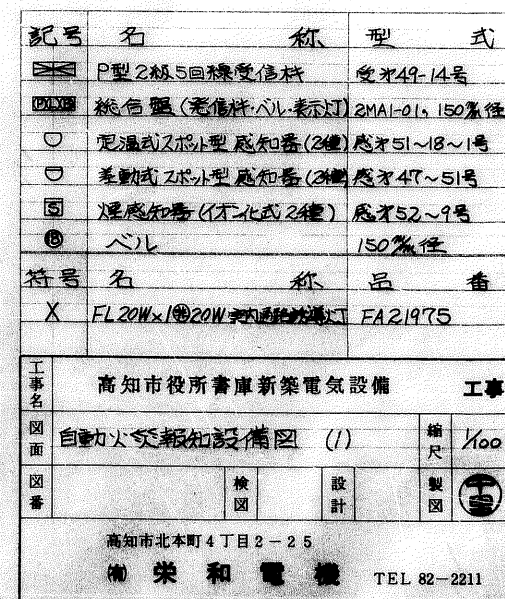 記号 名 称 型 式
P型2級5回線受信機 受第49-14号
総合盤(発信機・ベル・表示灯) 2MA1-01, 150%径
定温式スポット型感知器(2種) 感第51~18~1号
差動式スポット型感知器(2種) 感第47~51号
S 煙感知器(イオン化式2種) 感第52~9号
B ベル 150%径
符号 名 称 品 番
X FL20W×1 20W 室内通路誘導灯 FA21975
工事名 高知市役所書庫新築電気設備 工事
図面 自動火災報知設備図 (1) 縮尺 1/100
図番 検図 設計 製図
高知市北本町4丁目2-25
(有) 栄和電機 TEL 82-2211